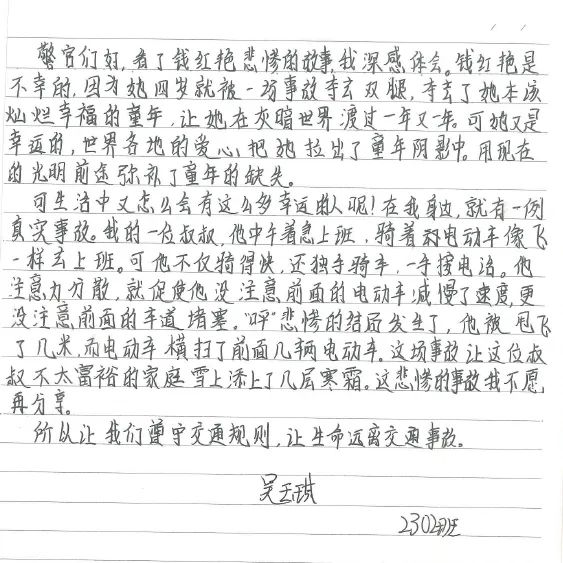 警官们好,看了钱红艳悲惨的故事,我深感体会。钱红艳是
不幸的,因为她四岁就被一场事故夺去双腿,夺去了她本该
灿烂幸福的童年,让她在灰暗世界渡过一年又一年。可她又是
幸运的,世界各地的爱心,把她拉出了童年阴影中。用现在
的光明前途弥补了童年的缺失。
可生活中又怎么会有这么多幸运的人呢!在我身边,就有一例
真实事故。我的一位叔叔,他中午着急上班,骑着电动车像飞
一样去上班。可他不仅骑得快,还独手骑车,一手接电话。他
注意力分散,就促使他没注意前面的电动车减慢了速度,更
没注意前面的车道堵塞。“呯”悲惨的结局发生了,他被甩飞
了几米,而电动车横扫了前面几辆电动车。这场事故让这位叔
叔不太富裕的家庭雪上添上了几层寒霜。这悲惨的事故我不愿
再分享。
所以让我们遵守交通规则,让生命远离交通事故。
吴玉琪
2302班